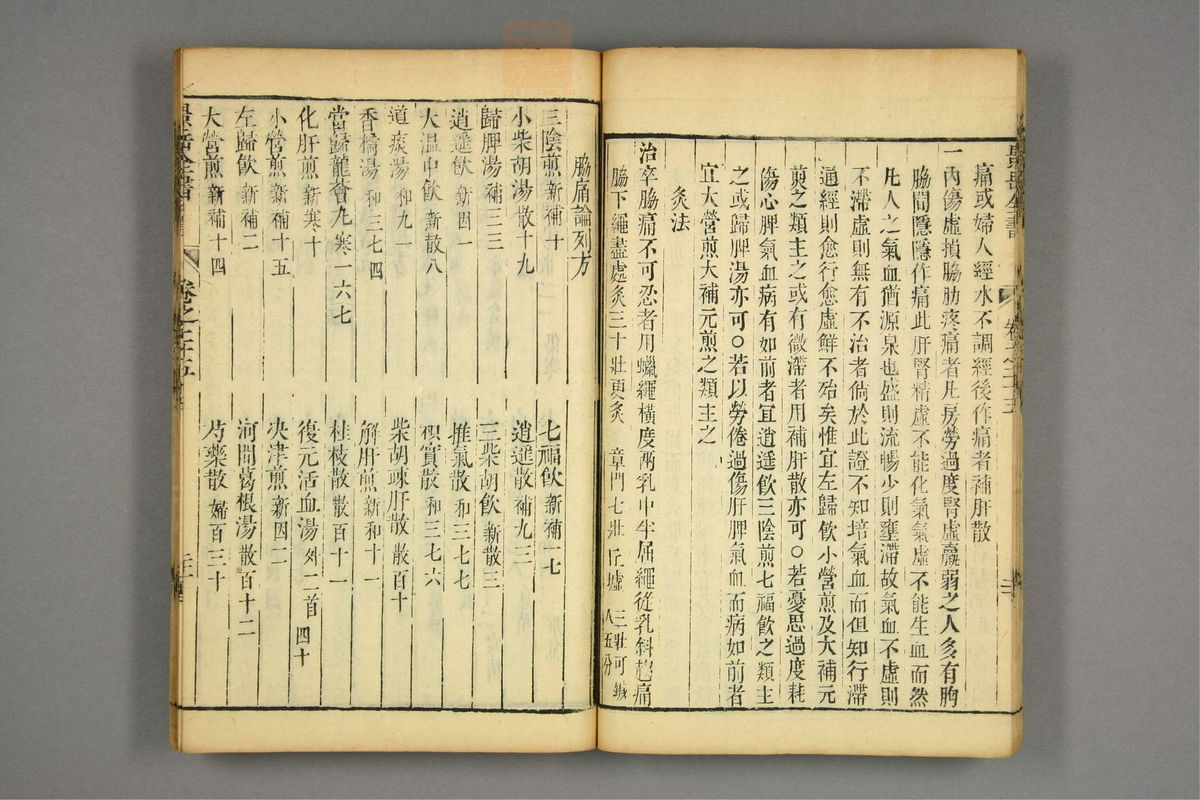 景岳全書 卷之二十五
痛或婦人經水不調經後作痛者補肝散
一內傷虛損脇肋疼痛者凡房勞過度腎虛羸弱之人多有胸
脇間隱隱作痛此肝腎精虛不能化氣氣虛不能生血而然
凡人之氣血猶源泉也盛則流暢少則壅滯故氣血不虛則
不滯虛則無有不滯者倘於此證不知培氣血而但知行滯
通經則愈行愈虛鮮不殆矣惟宜左歸飲小營煎及大補元
煎之類主之或有微滯者用補肝散亦可○若憂思過度耗
傷心脾氣血病有如前者宜逍遥飲三陰煎七福飲之類主
之或歸脾湯亦可○若以勞倦過傷肝脾氣血而病如前者
宜大營煎大補元煎之類主之
灸法
治卒脇痛不可忍者用蠟繩橫度兩乳中半屈繩從乳斜趨痛
脇下繩盡處灸三十壯更灸 章門七壯 丘墟 三壯可鍼入五分
脇痛論列方
三陰煎 新補十一 七福飲 新補一七
小柴胡湯 散十九 逍遥散 補九三
歸脾湯 補三三 三柴胡飲 新散三
逍遥飲 新因一 推氣散 和三七七
大温中飲 新散八 枳實散 和三七六
道痰湯 和九一 柴胡疎肝散 散百十
香橘湯 和三七四 解肝煎 新和十一
當歸龍薈丸 寒一六七 桂枝散 散百十一
化肝煎 新寒十 復元活血湯 外二首四十
小營煎 新補十五 決津煎 新因二
左歸飲 新補二 河間葛根湯 散百十二
大營煎 新補十四 芍藥散 婦百三十
景岳全書 卷之二十五